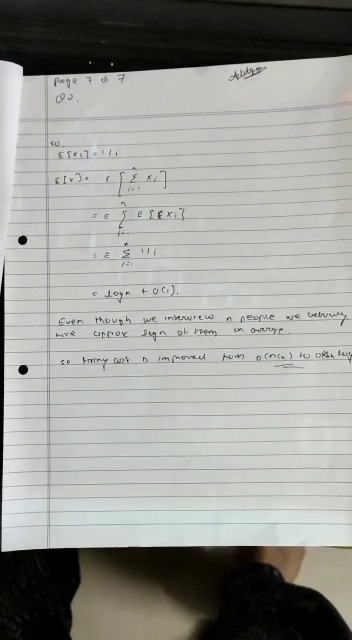 Page 7 of 7
Q2.
so
E[xi] = 1/i
E[x] = E [ n Σ i=1 xi ]
= E n Σ i=1 E[Exi]
= E n Σ i=1 1/i
= logn + O(1).
Even though we interview n people we
hire approx logn of them on average.
so hiring cost is improved from O(nCh) to